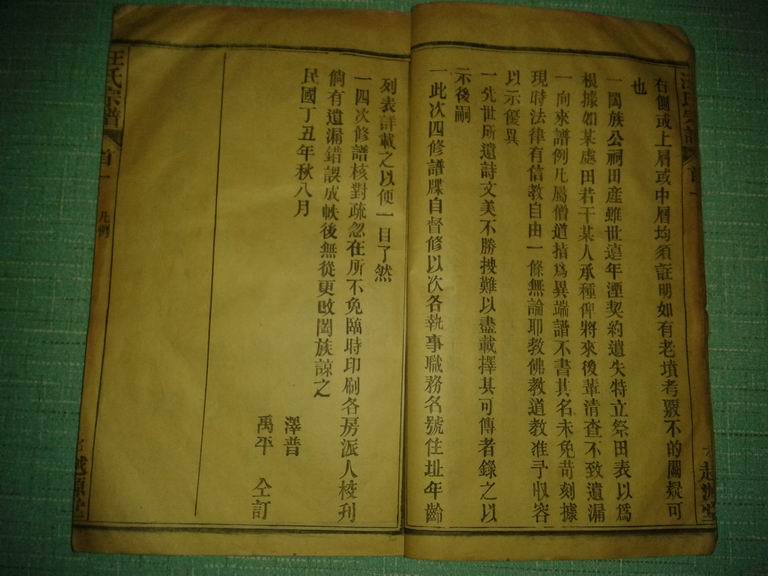 右側或上層或中層均須証明如有老墳考覈不的闕疑可
也
一闔族公祠田產雖世遠年湮契約遺失特立祭田表以爲
根據如某處田若干某人承種俾將來後輩清查不致遺漏
一向來譜例凡屬僧道指爲異端譜不書其名未免苛刻據
現時法律有信教自由一條無論耶教佛教道教准予収容
以示優異
一先世所遺詩文美不勝搜難以盡載擇其可傳者錄之以
示後嗣
一此次四修譜牒自督修以次各執事職務名號住址年齡
列表詳載之以便一目了然
一四次修譜核對疏忽在所不免臨時印刷各房派人校刋
倘有遺漏錯誤成帙後無從更改闔族諒之
民國丁丑年秋八月
澤普
禹平 仝訂
汪氏宗譜 首一 凡例
越源堂